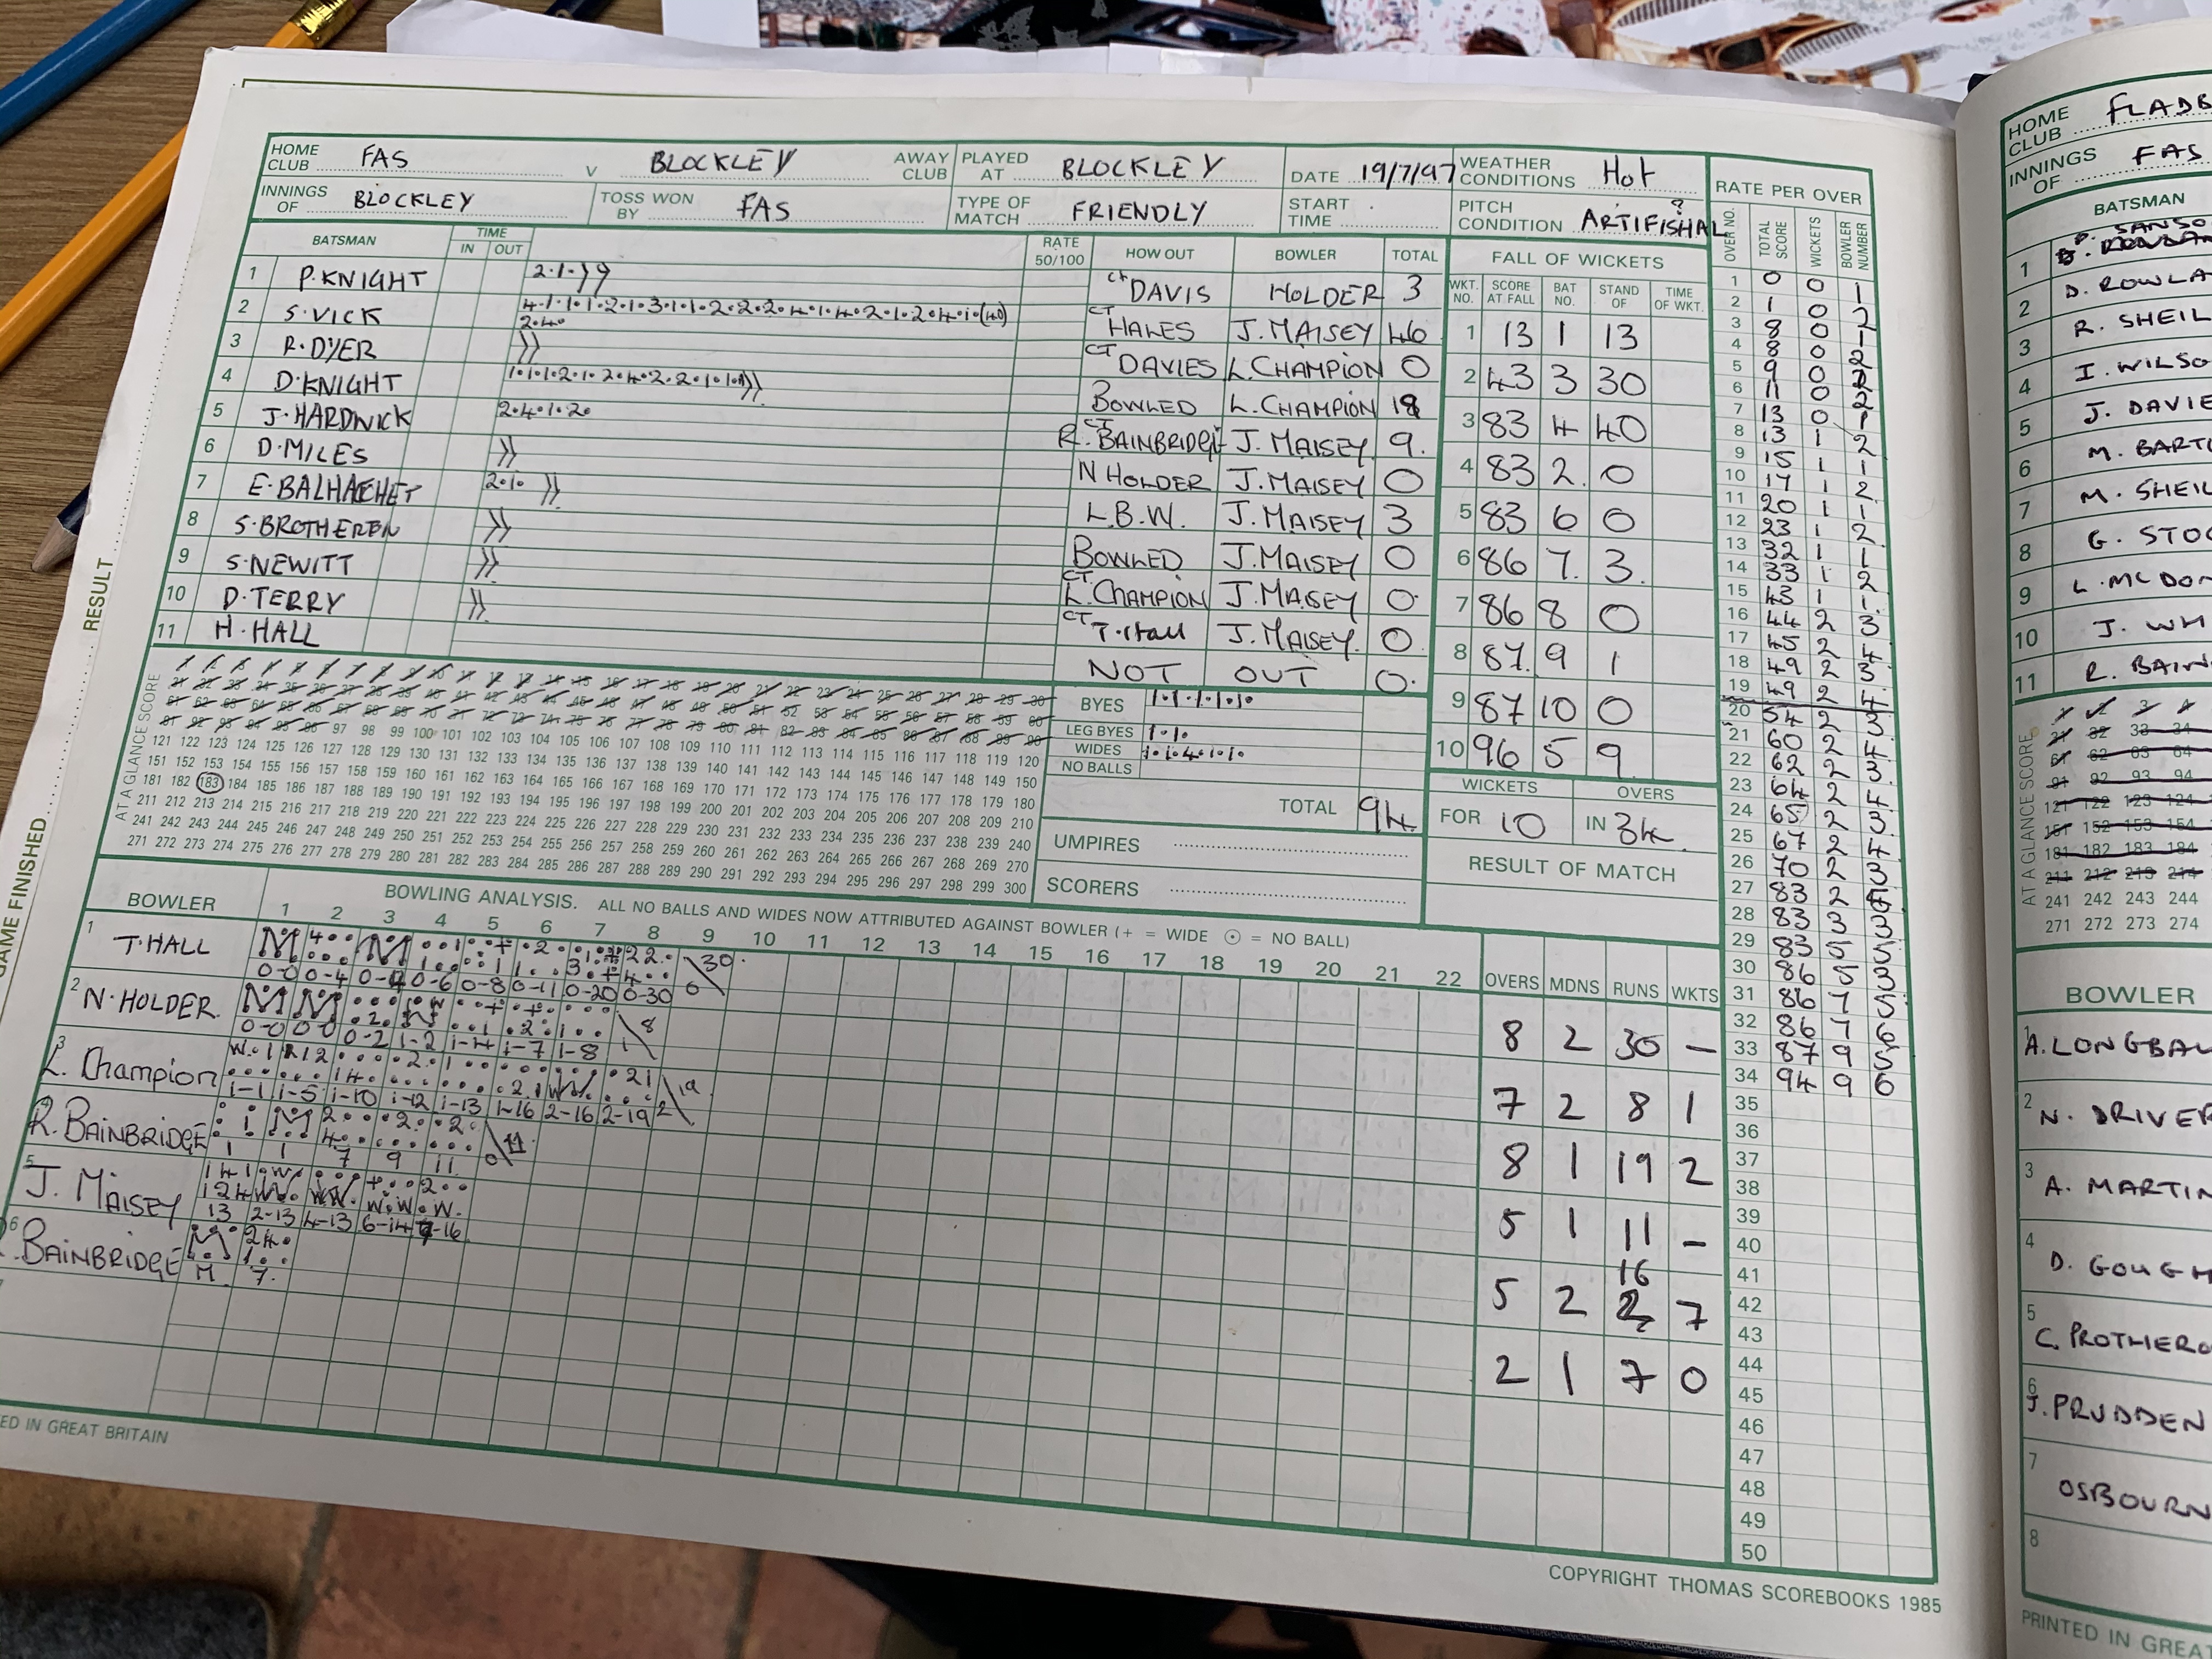 HOME CLUB FAS V BLOCKLEY AWAY CLUB PLAYED AT BLOCKLEY DATE 19/7/97 WEATHER CONDITIONS Hot
INNINGS OF BLOCKLEY TOSS WON BY FAS TYPE OF MATCH FRIENDLY START TIME PITCH CONDITION ARTIFISHAL ?
BATSMAN TIME IN OUT RATE 50/100 HOW OUT BOWLER TOTAL
1 P. KNIGHT 2·1· CT DAVIS HOLDER 3
2 S. VICK CT HAWES J. MAISEY 46
3 R. DYER CT DAVIES L. CHAMPION 0
4 D. KNIGHT BOWLED L. CHAMPION 18
5 J. HARDWICK 2·4·1·2· CT R. BAINBRIDGE J. MAISEY 9
6 D. MILES N HOLDER J. MAISEY 0
7 E. BALHATCHET 2·1· L.B.W. J. MAISEY 3
8 S. BROTHEREN BOWLED J. MAISEY 0
9 S. NEWITT CT L. CHAMPION J. MAISEY 0
10 D. TERRY CT T. Hall J. MAISEY 0
11 H. HALL NOT OUT 0
FALL OF WICKETS
WKT. NO. SCORE AT FALL BAT NO. STAND OF TIME OF WKT.
1 13 1 13
2 43 3 30
3 83 4 40
4 83 2 0
5 83 6 0
6 86 7 3
7 86 8 0
8 87 9 1
9 87 10 0
10 96 5 9
WICKETS OVERS
FOR 10 IN 34
RESULT OF MATCH
AT A GLANCE SCORE
97 98 99 100 101 102 103 104 105 106 107 108 109 110 111 112 113 114 115 116 117 118 119 120
121 122 123 124 125 126 127 128 129 130 131 132 133 134 135 136 137 138 139 140 141 142 143 144 145 146 147 148 149 150
151 152 153 154 155 156 157 158 159 160 161 162 163 164 165 166 167 168 169 170 171 172 173 174 175 176 177 178 179 180
181 182 183 184 185 186 187 188 189 190 191 192 193 194 195 196 197 198 199 200 201 202 203 204 205 206 207 208 209 210
211 212 213 214 215 216 217 218 219 220 221 222 223 224 225 226 227 228 229 230 231 232 233 234 235 236 237 238 239 240
241 242 243 244 245 246 247 248 249 250 251 252 253 254 255 256 257 258 259 260 261 262 263 264 265 266 267 268 269 270
271 272 273 274 275 276 277 278 279 280 281 282 283 284 285 286 287 288 289 290 291 292 293 294 295 296 297 298 299 300
BYES 1·1·1·1·1·
LEG BYES 1·1·
WIDES 1·1·4·1·1·
NO BALLS
TOTAL 94
UMPIRES
SCORERS
RATE PER OVER
OVER NO. TOTAL SCORE WICKETS BOWLER NUMBER
1 0 0 1
2 1 0 2
3 8 0 1
4 8 0 2
5 9 0
6 11 0 2
7 13 0 1
8 13 1 2
9 15 1 1
10 17 1 2
11 20 1 1
12 23 1 2
13 32 1 1
14 33 1 2
15 43 1 1
16 44 2 3
17 45 2 4
18 49 2 3
19 49 2 4
20 54 2 3
21 60 2 4
22 62 2 3
23 64 2 4
24 65 2 3
25 67 2 4
26 70 2 3
27 83 2 5
28 83 3 3
29 83 5 5
30 86 5 3
31 86 7 5
32 86 7 6
33 87 9 5
34 94 9 6
35
36
37
38
39
40
41
42
43
44
45
46
47
48
49
50
BOWLER BOWLING ANALYSIS. ALL NO BALLS AND WIDES NOW ATTRIBUTED AGAINST BOWLER (+ = WIDE ⊙ = NO BALL)
1 2 3 4 5 6 7 8 9 10 11 12 13 14 15 16 17 18 19 20 21 22 OVERS MDNS RUNS WKTS
1 T. HALL 0-0 0-4 0-4 0-6 0-8 0-11 0-20 0-30 8 2 30 –
2 N. HOLDER 0-0 0-0 0-2 1-2 1-4 1-7 1-8 7 2 8 1
3 L. Champion 1-1 1-5 1-10 1-12 1-13 1-16 2-16 2-19 8 1 19 2
4 R. BAINBRIDGE 1 1 7 9 11 5 1 11 –
5 J. MAISEY 13 2-13 4-13 6-14 7-16 5 2 16 7
6 BAINBRIDGE M 7 2 1 7 0
RESULT
GAME FINISHED
PRINTED IN GREAT BRITAIN
COPYRIGHT THOMAS SCOREBOOKS 1985
HOME CLUB FLADB
INNINGS OF FAS
BATSMAN
1 P. SANSO
2 D. ROWLA
3 R. SHEIL
4 I. WILSO
5 J. DAVIE
6 M. BART
7 M. SHEIL
8 G. STO
9 L. MCDON
10 J. WH
11 R. BAIN
AT A GLANCE SCORE
241 242 243 244
271 272 273 274
BOWLER
1 A. LONGBAL
2 N. DRIVER
3 A. MARTIN
4 D. GOUGH
5 C. PROTHERO
6 J. PRUDDEN
7 OSBOURN
8
PRINTED IN GREAT